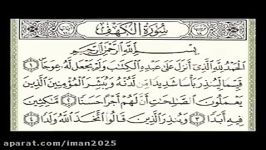 سُورَةُ الكَهْفِ
بِسْمِ ٱللَّهِ ٱلرَّحْمَٰنِ ٱلرَّحِيمِ
ٱلْحَمْدُ لِلَّهِ ٱلَّذِىٓ أَنزَلَ عَلَىٰ عَبْدِهِ ٱلْكِتَٰبَ وَلَمْ يَجْعَل لَّهُۥ عِوَجَا ۜ ١
قَيِّمًا لِّيُنذِرَ بَأْسًا شَدِيدًا مِّن لَّدُنْهُ وَيُبَشِّرَ ٱلْمُؤْمِنِينَ ٱلَّذِينَ
يَعْمَلُونَ ٱلصَّٰلِحَٰتِ أَنَّ لَهُمْ أَجْرًا حَسَنًا ٢ مَّٰكِثِينَ
فِيهِ أَبَدًا ٣ وَيُنذِرَ ٱلَّذِينَ قَالُوا۟ ٱتَّخَذَ ٱللَّهُ وَلَدًا ٤
aparat.com/iman2025